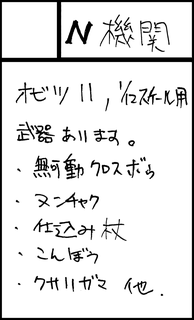 N 機関
オビツ11, 1/12スケール用
武器あります。
・無可動クロスボウ
・ヌンチャク
・仕込み杖
・こんぼう
・クサリガマ 他.